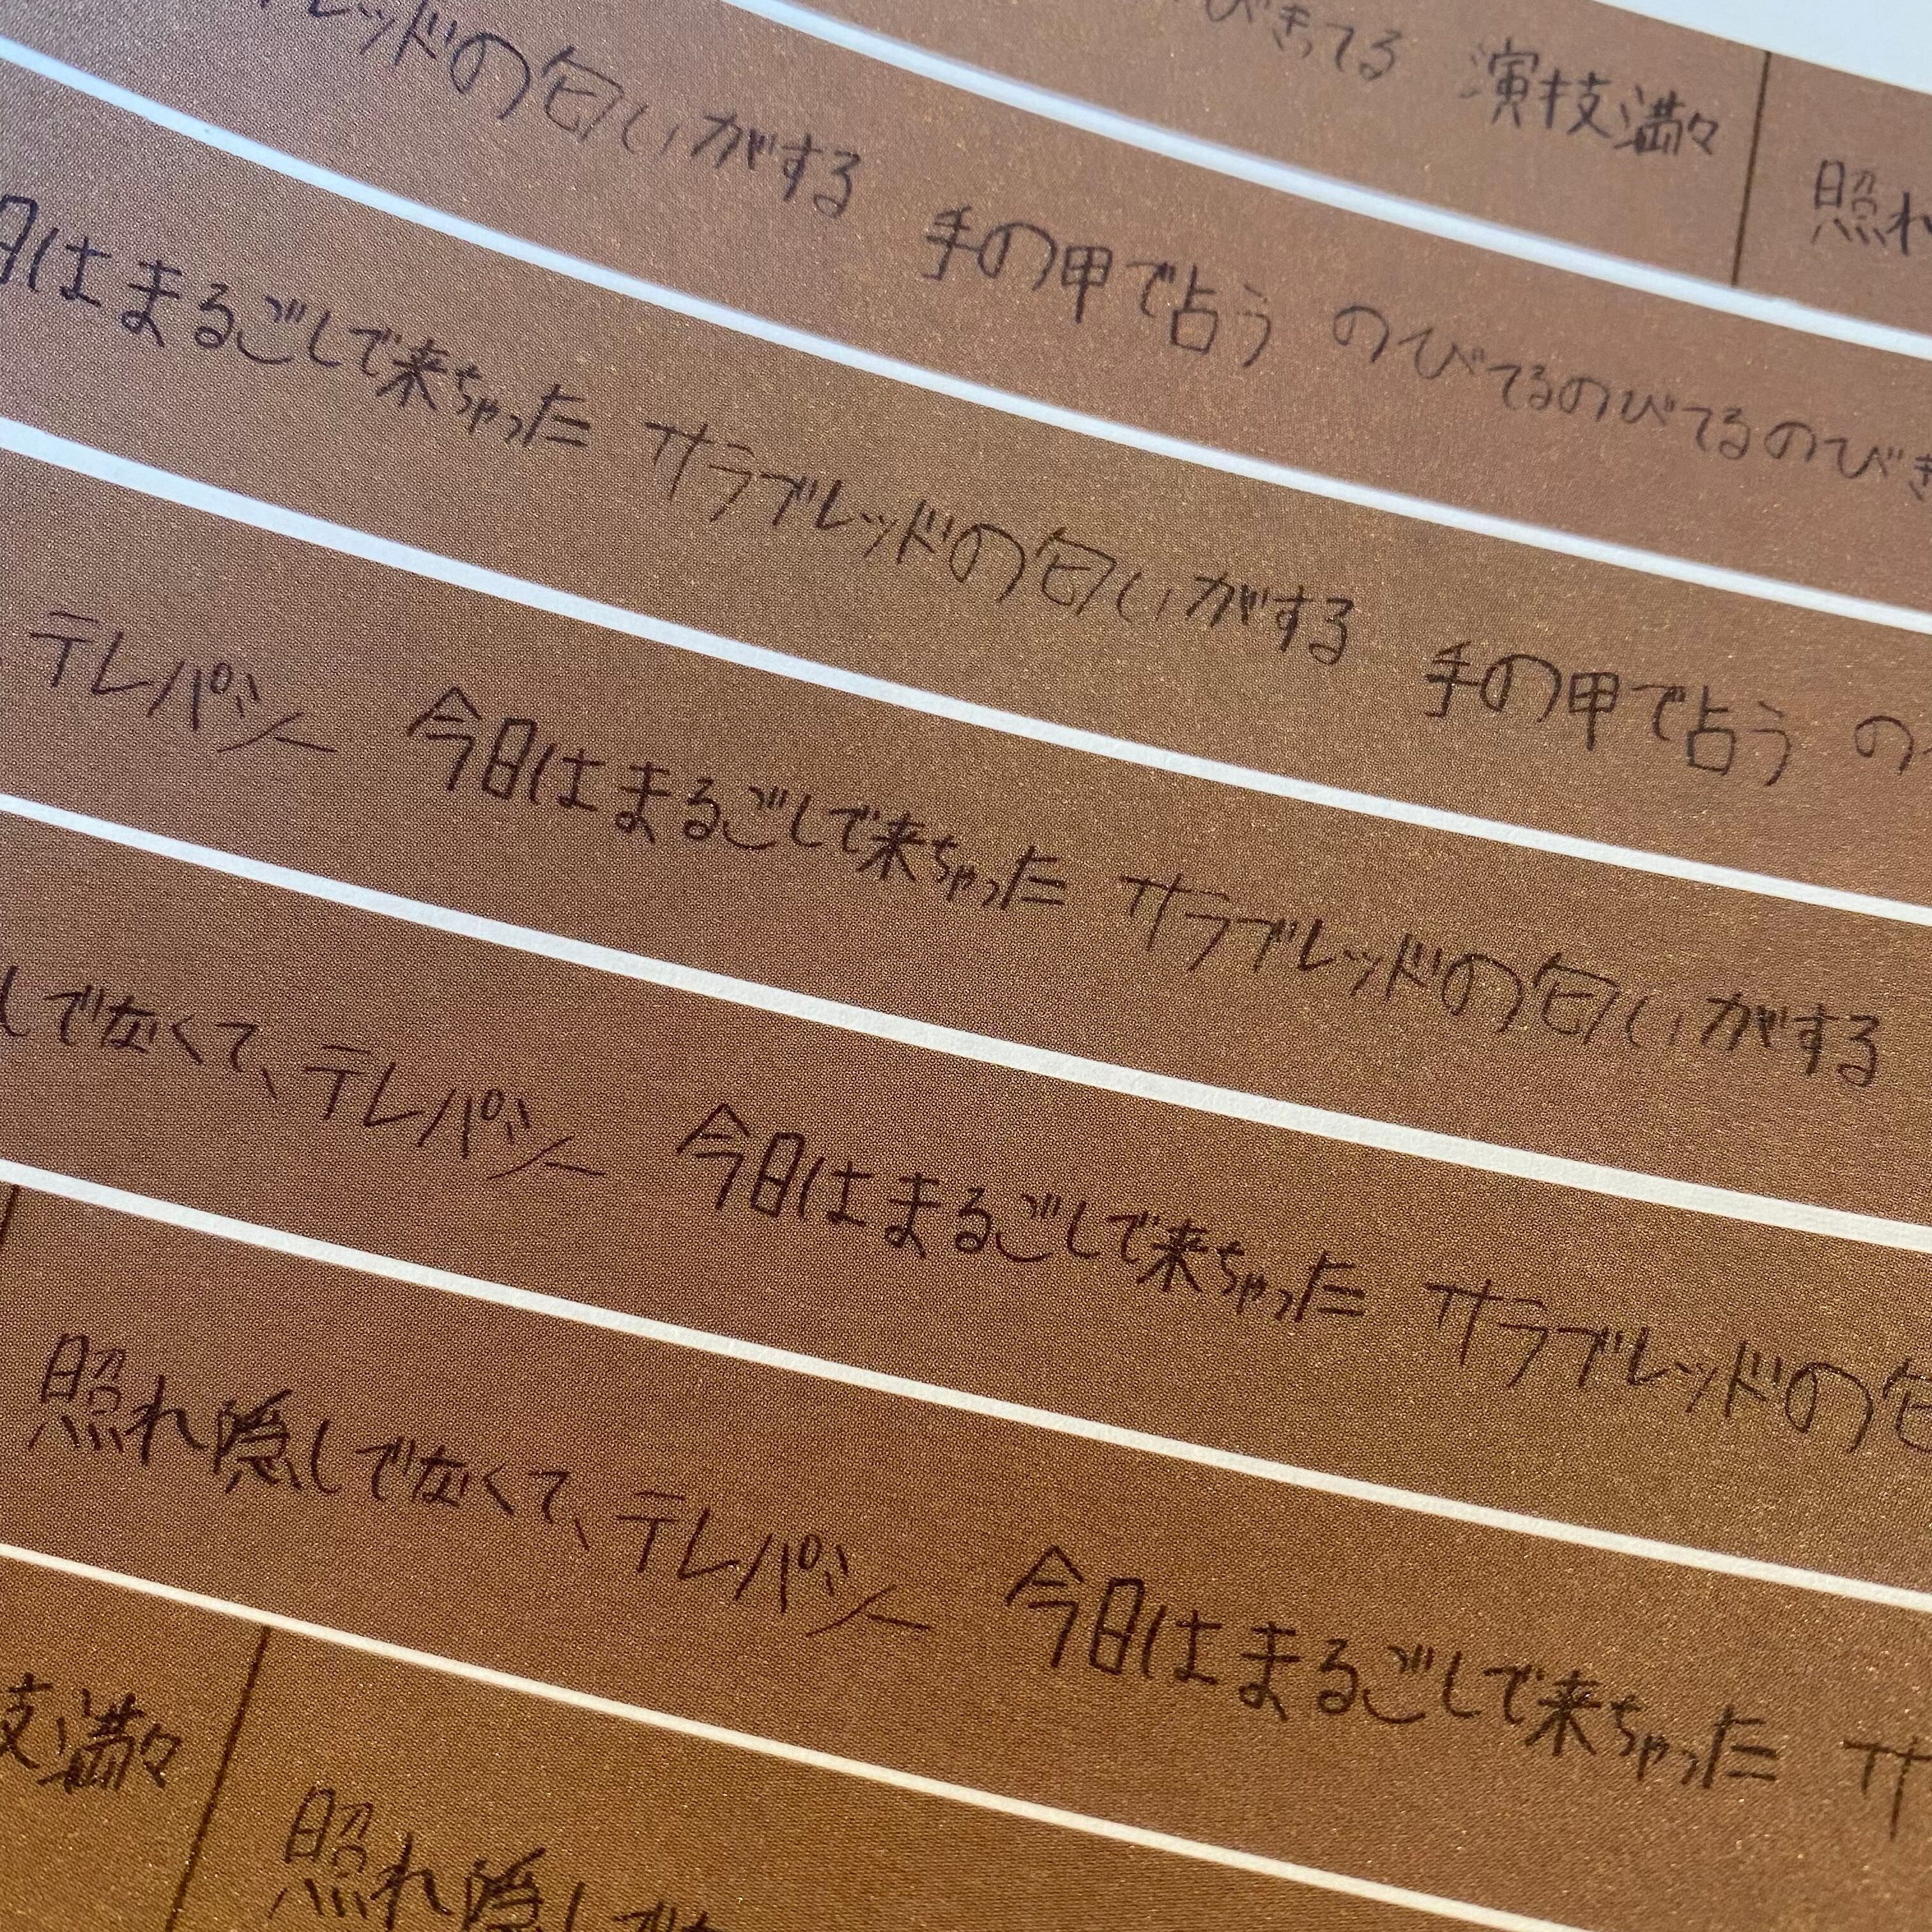 びきってる 演技満々 照れ
レッドの匂いがする 手の甲で占う のびてるのびてるのびき
日はまるごしで来ちゃった サラブレッドの匂いがする 手の甲で占う の
テレパシー 今日はまるごしで来ちゃった サラブレッドの匂いがする
しでなくて、テレパシー 今日はまるごしで来ちゃった サラブレッドの匂
照れ隠しでなくて、テレパシー 今日はまるごしで来ちゃった サ
技満々 照れ隠しでな